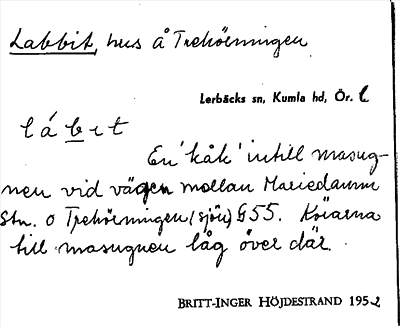 Labbit, hus å Trehörningen
Lerbäcks sn, Kumla hd, Ör. l
l á b ι t
En 'kåk' intill masug-
nen vid vägen mellan Mariedamm
stn. o Trehörningen (sjön) G55. Köiarna
till masugnen låg över där.
BRITT-INGER HÖJDESTRAND 1952